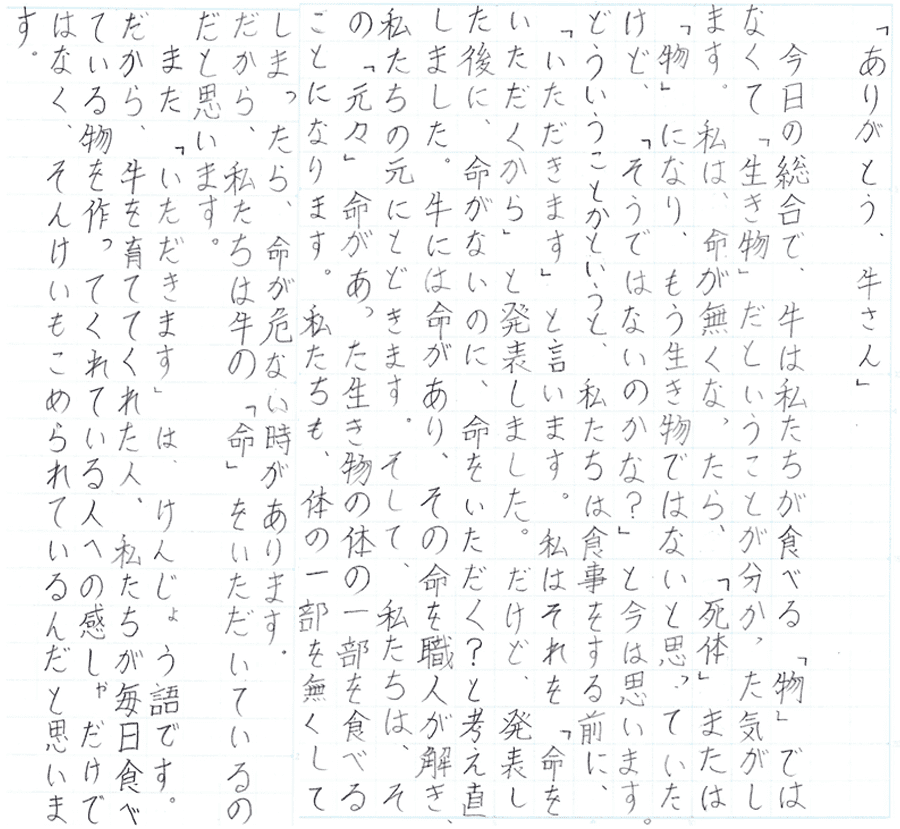 「ありがとう、牛さん」
今日の総合で、牛は私たちが食べる「物」では
なくて「生き物」だということが分かった気がし
ます。私は、命が無くなったら、「死体」または
「物」になり、もう生き物ではないと思っていた
けど、「そうではないのかな?」と今は思います。
どういうことかというと、私たちは食事をする前に、
「いただきます」と言います。私はそれを「命を
いただくから」と発表しました。だけど、発表し
た後に、命がないのに、命をいただく?と考え直
しました。牛には命があり、その命を職人が解き、
私たちの元にとどきます。そして、私たちは、そ
の「元々」命があった生き物の体の一部を食べる
ことになります。私たちも、体の一部を無くして
しまったら、命が危ない時があります。
だから、私たちは牛の「命」をいただいているの
だと思います。
また「いただきます」は、けんじょう語です。
だから、牛を育ててくれた人、私たちが毎日食べ
ている物を作ってくれている人への感しゃだけで
はなく、そんけいもこめられているんだと思いま
す。